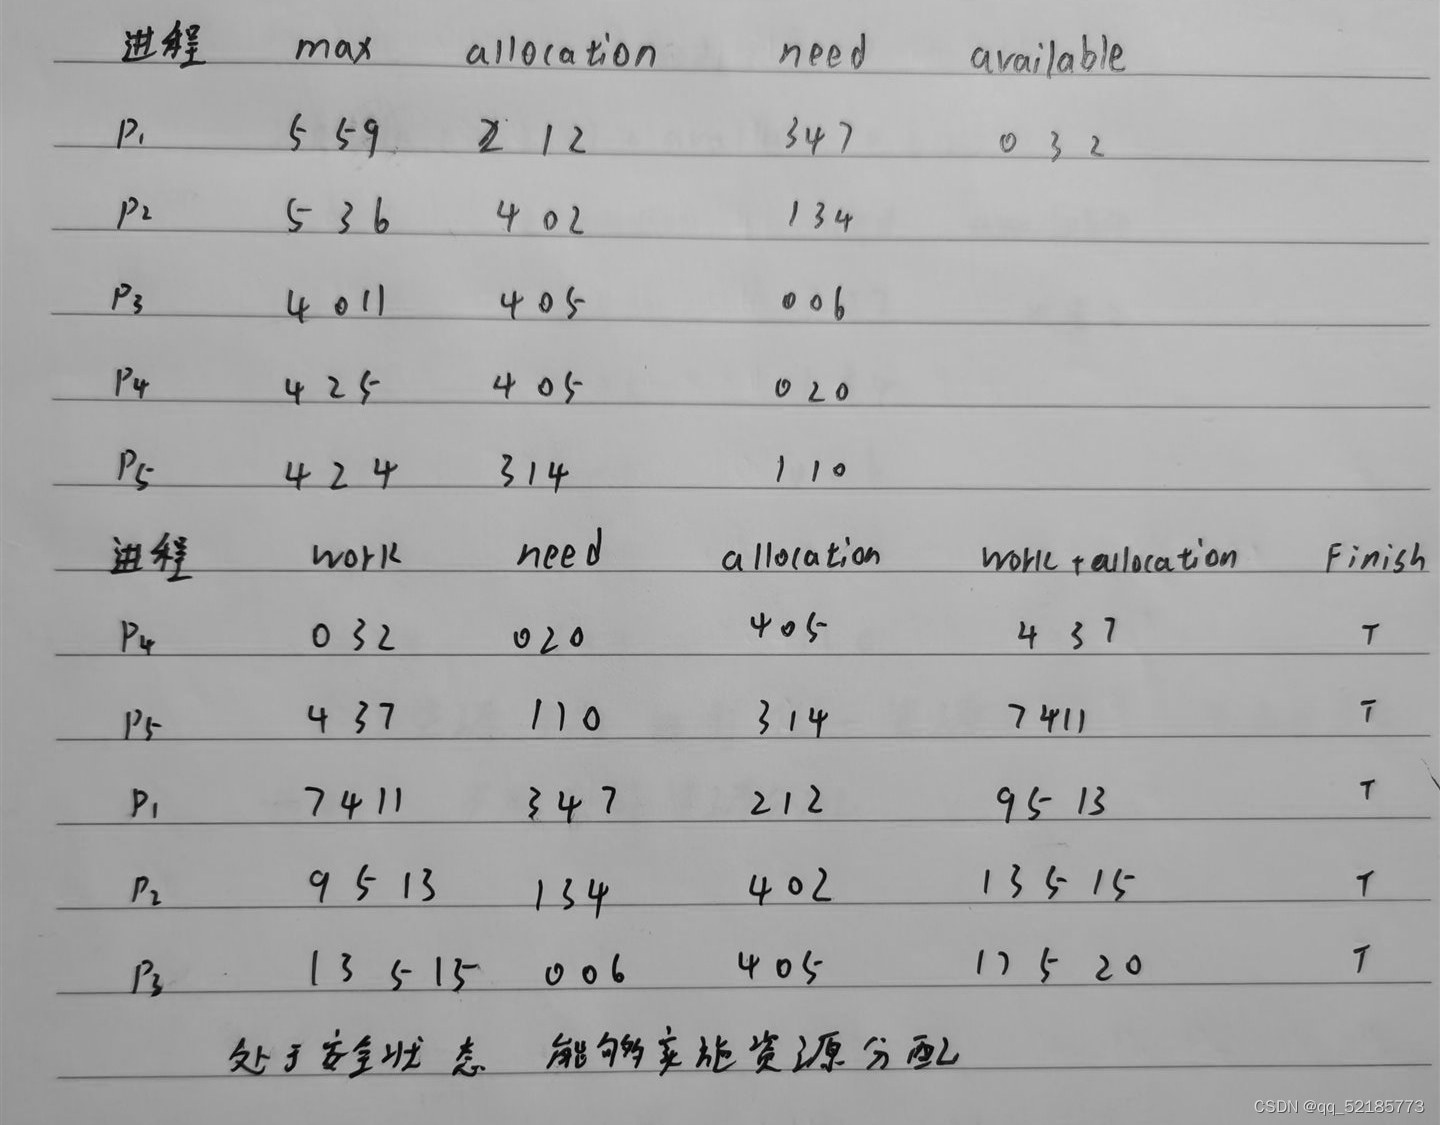 进程 max allocation need available
P1 5 5 9 2 1 2 3 4 7 0 3 2
P2 5 3 6 4 0 2 1 3 4
P3 4 0 11 4 0 5 0 0 6
P4 4 2 5 4 0 5 0 2 0
P5 4 2 4 3 1 4 1 1 0
进程 work need allocation work+allocation Finish
P4 0 3 2 0 2 0 4 0 5 4 3 7 T
P5 4 3 7 1 1 0 3 1 4 7 4 11 T
P1 7 4 11 3 4 7 2 1 2 9 5 13 T
P2 9 5 13 1 3 4 4 0 2 13 5 15 T
P3 13 5 15 0 0 6 4 0 5 17 5 20 T
处于安全状态 能够实施资源分配
CSDN @qq_52185773